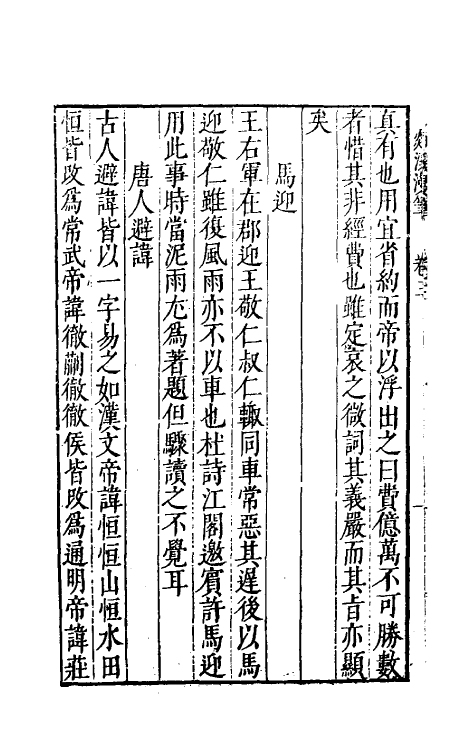 真有也用宜省約而帝以浮出之曰費億萬不可勝數
者惜其非經費也雖定哀之微詞其義嚴而其旨亦顯
矣
馬迎
王右軍在郡迎王敬仁叔仁輙同車常惡其遲後以馬
迎敬仁雖復風雨亦不以車也杜詩江閣邀賓許馬迎
用此事時當泥雨尤爲著題但驟讀之不覺耳
唐人避諱
古人避諱皆以一字易之如漢文帝諱恒恒山恒水田
恒皆改爲常武帝諱徹蒯徹徹侯皆改爲通明帝諱莊